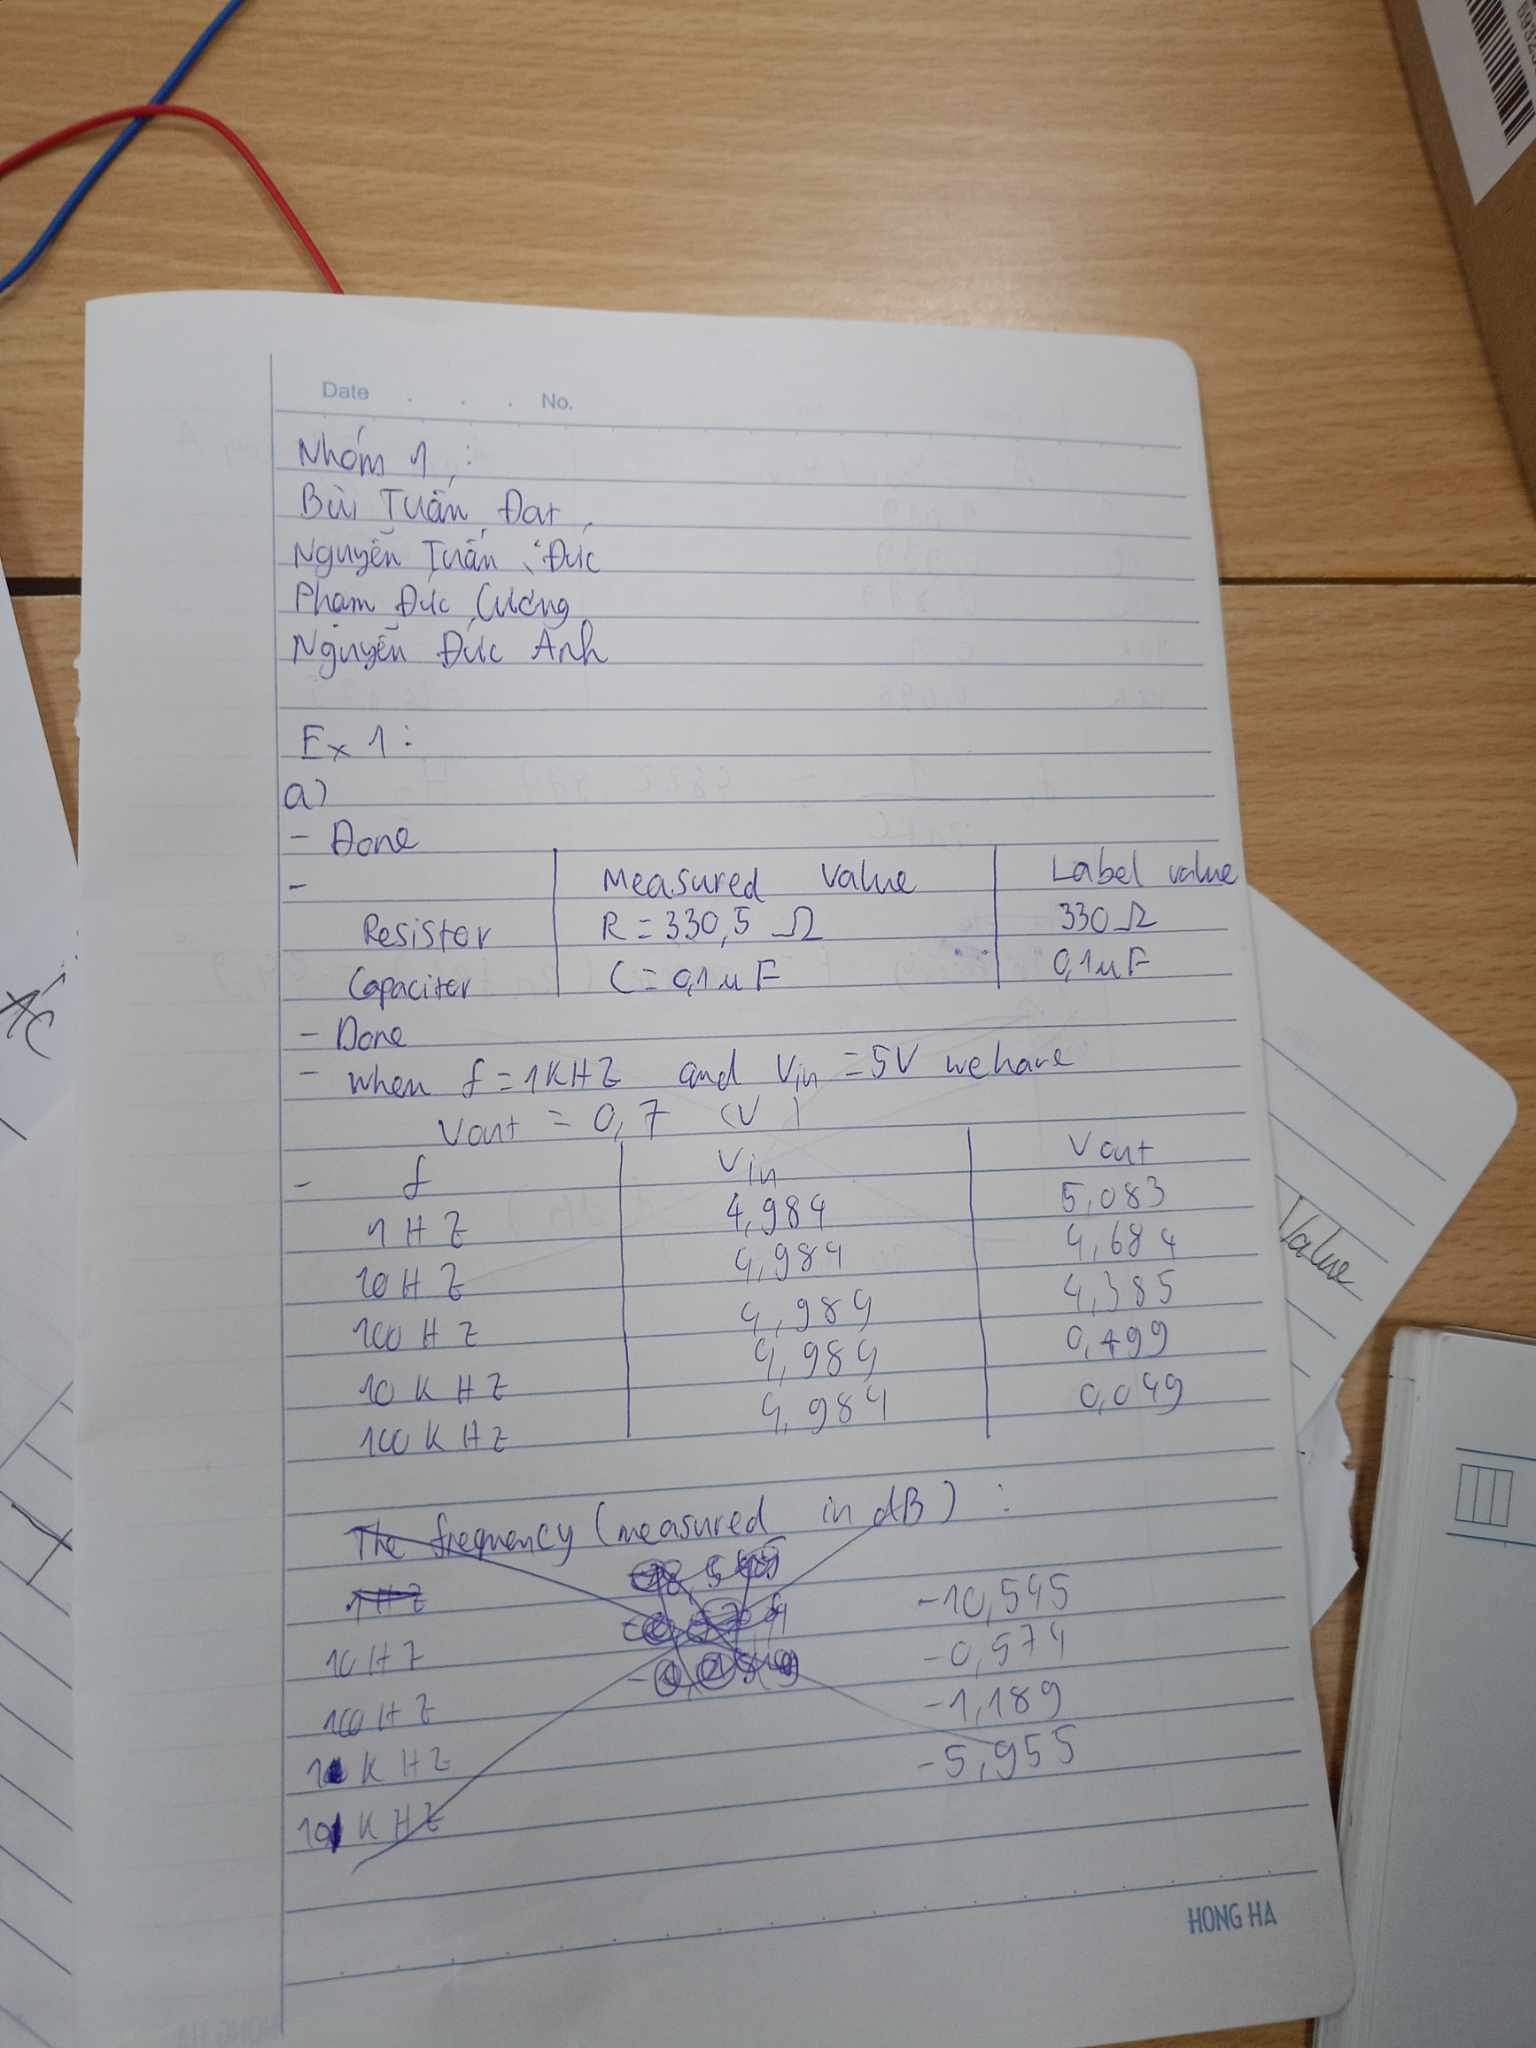 Date . . . No.
Nhóm 1 :
Bùi Tuấn Đạt
Nguyễn Tuấn Đức
Phạm Đức Cường
Nguyễn Đức Anh
Ex 1 :
a)
- Done
- Measured value Label value
Resistor R = 330,5 Ω 330 Ω
Capacitor C = 0,1 µF 0,1 µF
- Done
- When f = 1 KHZ and Vin = 5V we have
Vout = 0,7 (V)
- f Vin Vout
1 HZ 4,984 5,083
10 HZ 4,984 4,684
100 HZ 4,984 4,385
10 KHZ 4,984 0,499
100 KHZ 4,984 0,049
The frequency (measured in dB) :
1 HZ -10,545
10 HZ -0,574
100 HZ -1,189
KHZ -5,955
KHZ
HONG HA
Value